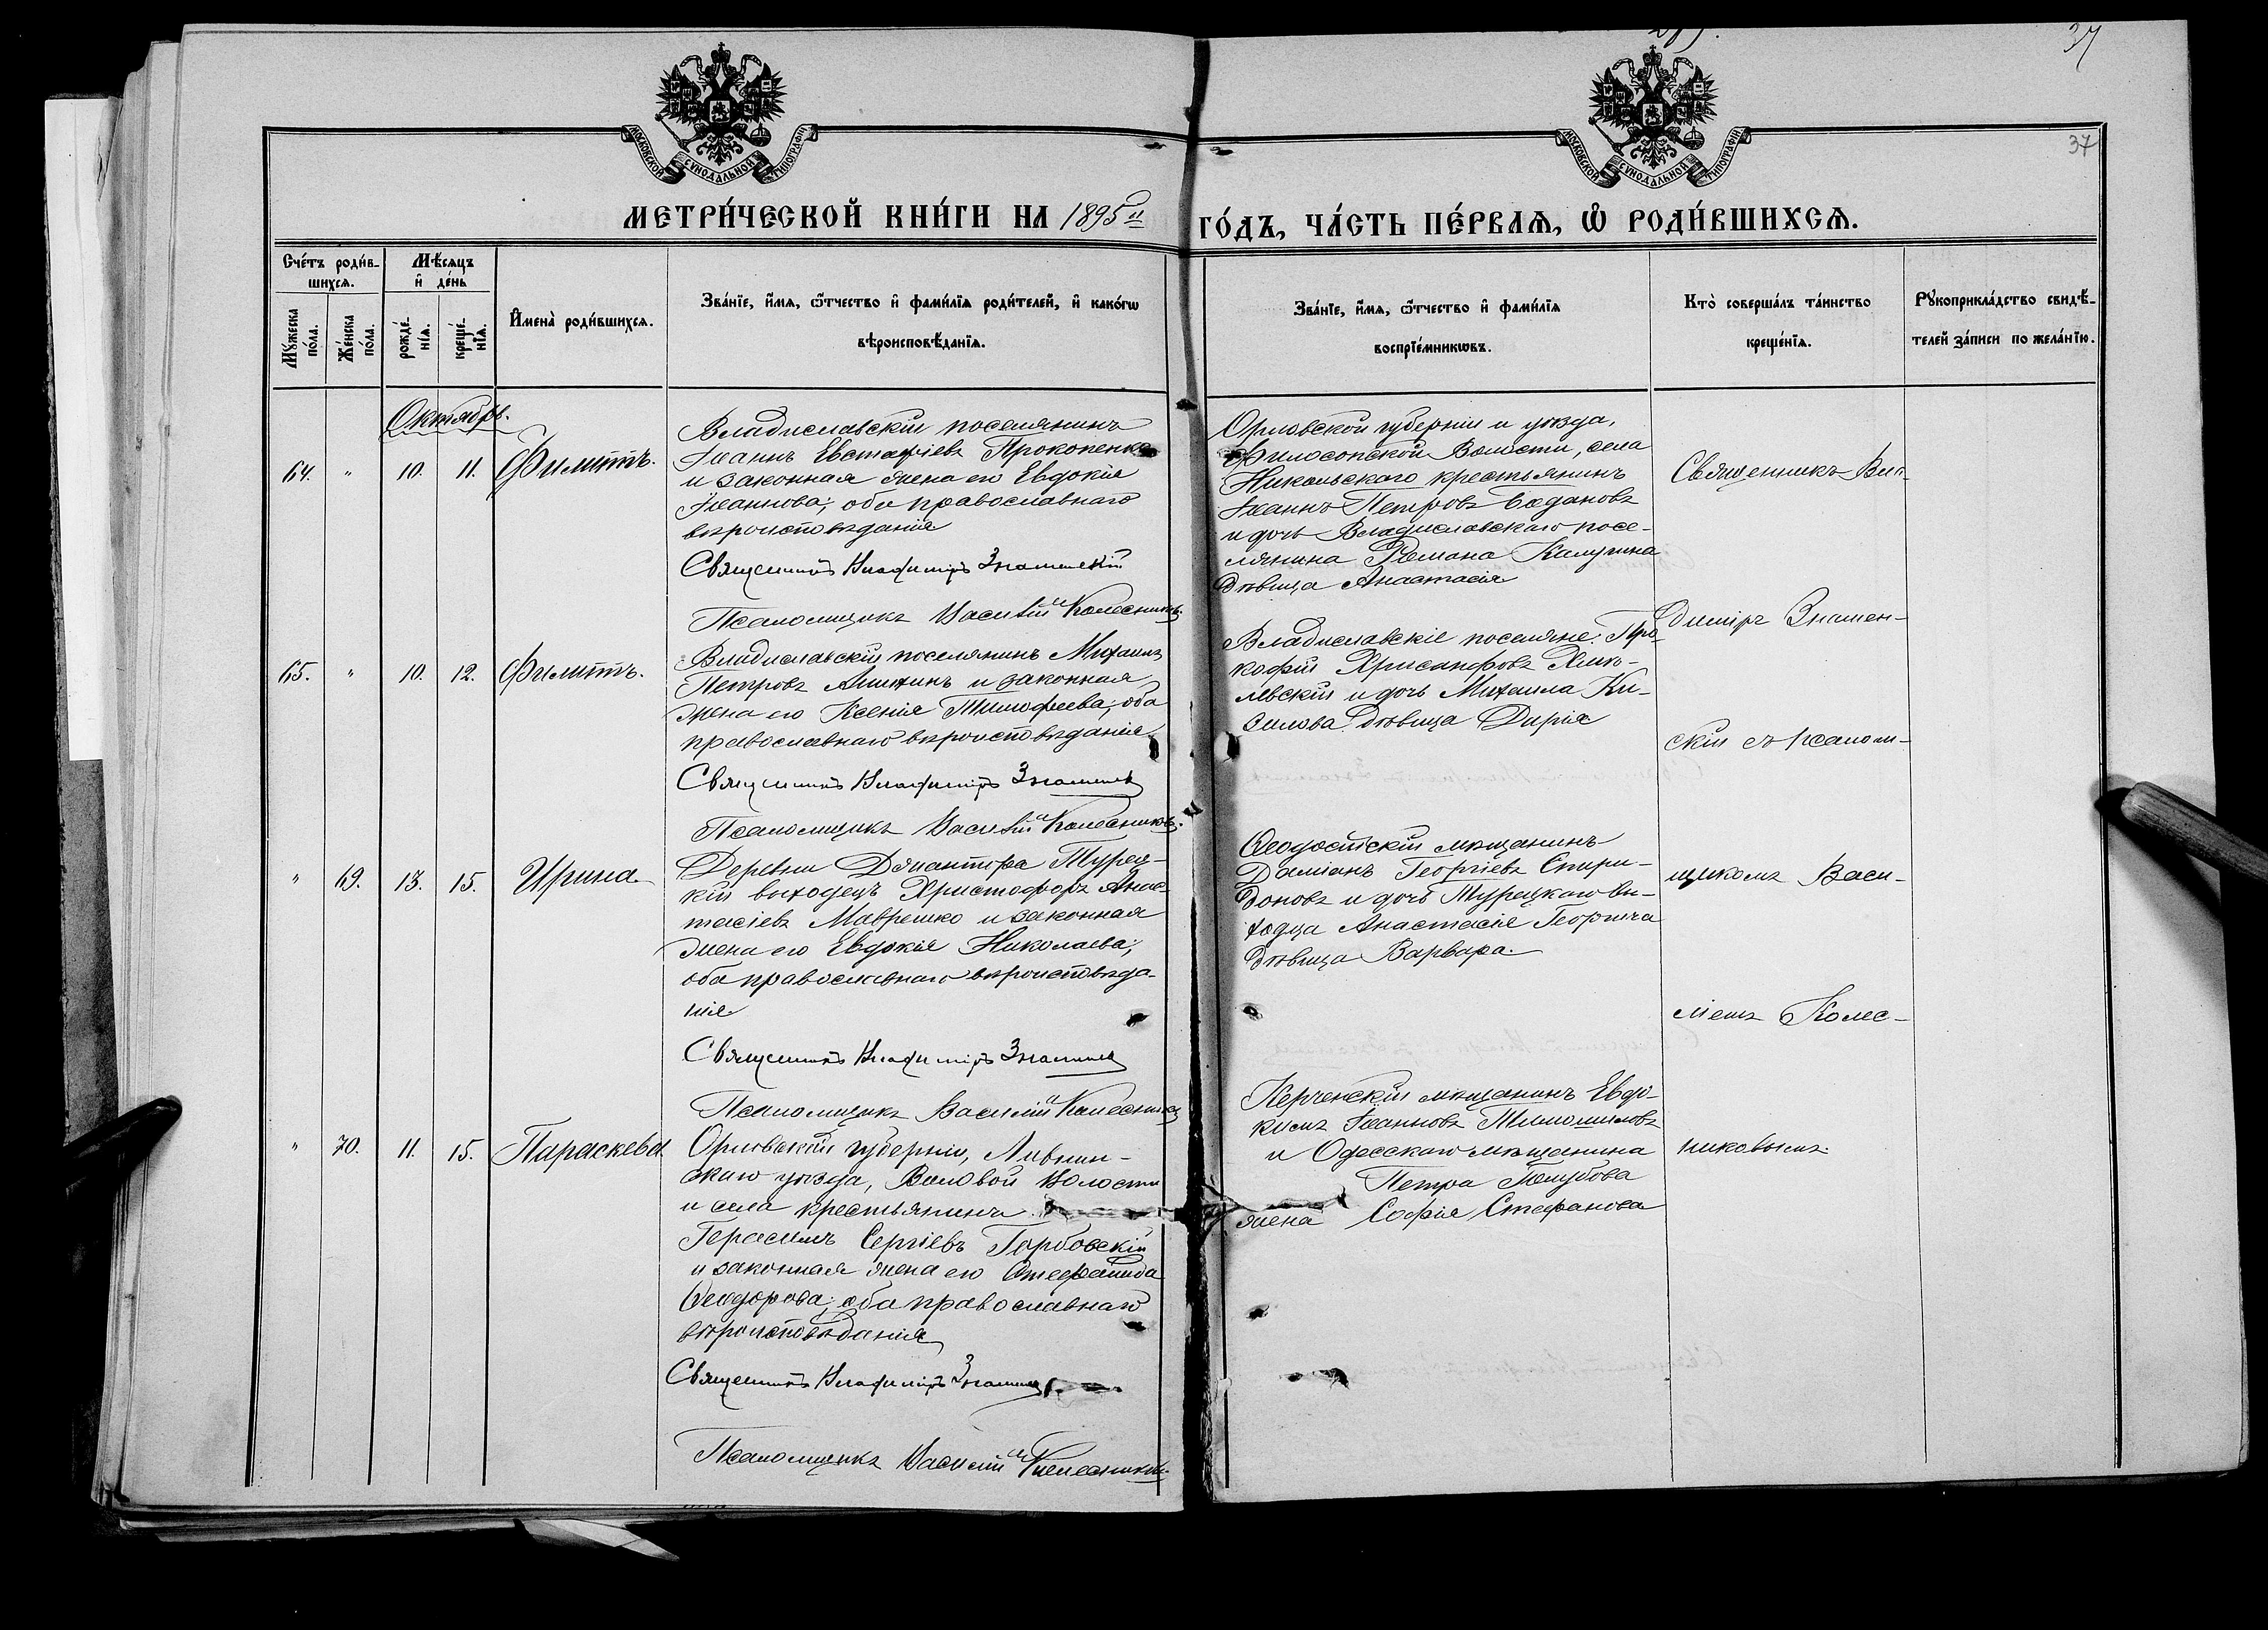 37
МОСКОВСКОЙ СѴНОДАЛЬНОЙ ТИПОГРАФІИ
МОСКОВСКОЙ СѴНОДАЛЬНОЙ ТИПОГРАФІИ
37
МЕТРИ́ЧЕСКОЙ КНИ́ГИ НА 1895й ГО́ДЪ, ЧА́СТЬ ПЕ́РВАѦ, Ѡ҆ РОДИ́ВШИХСѦ.
Сче́тъ роди́в-
шихсѧ.
Мꙋ́жеска
по́ла.
Же́нска
по́ла.
Мѣ́сѧцъ
и҆ де́нь
рожде́-
нїѧ.
креще́-
нїѧ.
И҆мена̀ роди́вшихсѧ.
Зва́нїе, и҆́мѧ, ѻ҆́тчество и҆ фами́лїѧ роди́телей, и҆ како́гѡ
вѣроисповѣ́данїѧ.
Зва́нїе, и҆́мѧ, ѻ҆́тчество и҆ фами́лїѧ
воспрїе́мникѡвъ.
Кто̀ соверша́лъ та́инство
креще́нїѧ.
Рꙋкоприкла́дство свидѣ́-
телей за́писи по жела́нїю.
Октябрь.
64. " 10. 11. Филиппъ.
Владиславскій поселянинъ
Іоаннъ Евстафіевъ Прокопенко
и законная жена его Евдокія
Іоаннова; оба православнаго
вѣроисповѣданія
Священникъ Владиміръ Знаменскій
Псаломщикъ Василій Колесниковъ.
Орловской губерніи и уѣзда,
Волости, села
Никольскаго крестьянинъ
Іоаннъ Петровъ
и дочь Владиславскаго посе-
лянина Романа Калугина
дѣвица Анастасія
Священникъ Вла-
65. " 10. 12. Филиппъ.
Владиславскій поселянинъ Михаилъ
Петровъ и законная
жена его Ксенія Тимофеева; оба
православнаго вѣроисповѣданія
Священникъ Владиміръ Знаменскій
Псаломщикъ Василій Колесниковъ.
Владиславскіе поселяне: Про-
кофій Хрисанфовъ Хмѣ-
левскій и дочь Михаила Ки-
силова дѣвица Дарія
диміръ Знамен-
скій съ псалом-
" 69. 13. 15. Ирина.
Деревни Турец-
кій выходецъ Христофоръ Анас-
тасіевъ Маврешко и законная
жена его Евдокія Николаева;
оба православнаго вѣроисповѣда-
нія
Священникъ Владиміръ Знаменскій
Псаломщикъ Василій Колесниковъ
Ѳеодосійскій мѣщанинъ
Даміанъ Георгіевъ Спири-
доновъ и дочь Турецкаго вы-
ходца Анастасія
дѣвица Варвара.
щикомъ Васи-
ліемъ Колес-
" 70. 11. 15. Параскева
Орловской губерніи, Ливнин-
скаго уѣзда, Воловой Волости
и села крестьянинъ
Герасимъ Сергіевъ Горбовскій
и законная жена его Стефанида
Ѳеодорова; оба православнаго
вѣроисповѣданія
Священникъ Владиміръ Знаменскій
Псаломщикъ Василій Колесниковъ.
Керченскій мѣщанинъ Евдо-
кимъ Іоанновъ
и Одесскаго мѣщанина
Петра Голубова
жена Софія Стефанова
никовымъ.